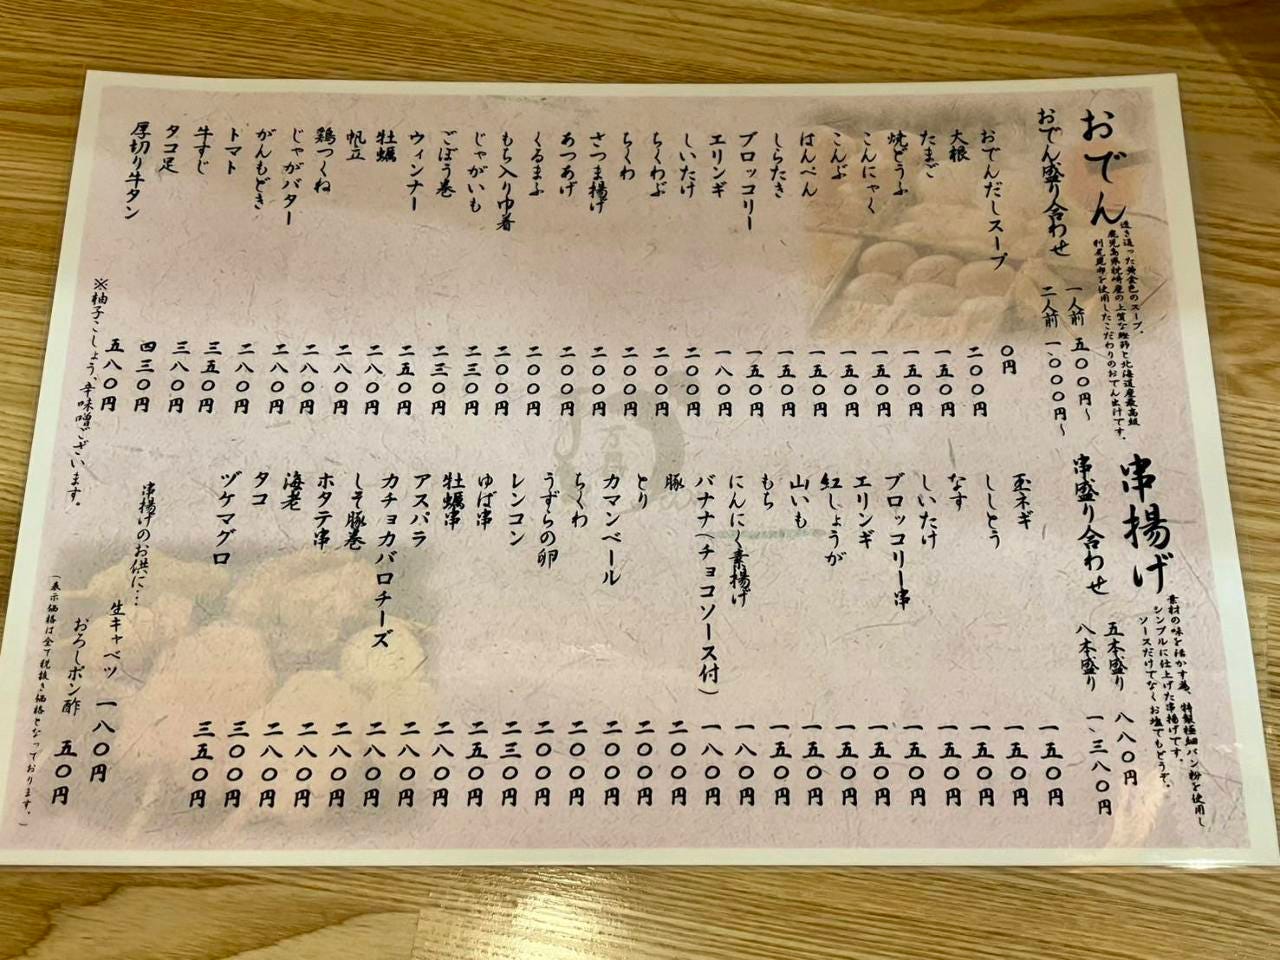 おでん
透き通った黄金色のスープ。
鹿児島県枕崎産の上質な鰹節と北海道産最高級
利尻昆布を使用したこだわりのおでん出汁です。
おでん盛り合わせ 一人前 五〇〇円〜
二人前 一、〇〇〇円〜
おでんだしスープ 〇円
大根 二〇〇円
たまご 一五〇円
焼どうふ 一五〇円
こんにゃく 一五〇円
こんぶ 一五〇円
はんぺん 一五〇円
しらたき 一五〇円
ブロッコリー 一五〇円
エリンギ 一八〇円
しいたけ 二〇〇円
ちくわぶ 二〇〇円
ちくわ 二〇〇円
さつま揚げ 二〇〇円
あつあげ 二〇〇円
くるまふ 二〇〇円
もち入り巾着 二三〇円
じゃがいも 二〇〇円
ごぼう巻 二三〇円
ウィンナー 二五〇円
牡蠣 二八〇円
帆立 二八〇円
鶏つくね 二八〇円
じゃがバター 二八〇円
がんもどき 二八〇円
トマト 三五〇円
牛すじ 三八〇円
タコ足 四三〇円
厚切り牛タン 五八〇円
※柚子こしょう、辛味噌ございます。
串揚げ
素材の味を活かす為、特製極細パン粉を使用し
シンプルに仕上げた串揚げです。
ソースだけでなくお塩でもどうぞ。
串盛り合わせ 五本盛り 八八〇円
八本盛り 一、三八〇円
玉ネギ 一五〇円
ししとう 一五〇円
なす 一五〇円
しいたけ 一五〇円
ブロッコリー串 一五〇円
エリンギ 一五〇円
紅しょうが 一五〇円
山いも 一五〇円
もち 一五〇円
にんにく素揚げ 一八〇円
バナナ(チョコソース付) 一八〇円
豚 二〇〇円
とり 二〇〇円
カマンベール 二〇〇円
ちくわ 二〇〇円
うずらの卵 二〇〇円
レンコン 二三〇円
ゆば串 二五〇円
牡蠣串 二八〇円
アスパラ 二八〇円
カチョカバロチーズ 二八〇円
しそ豚巻 二八〇円
ホタテ串 二八〇円
海老 二八〇円
タコ 三〇〇円
ヅケマグロ 三五〇円
串揚げのお供に…
生キャベツ 一八〇円
おろしポン酢 五〇円
(表示価格は全て税抜き価格となっております。)